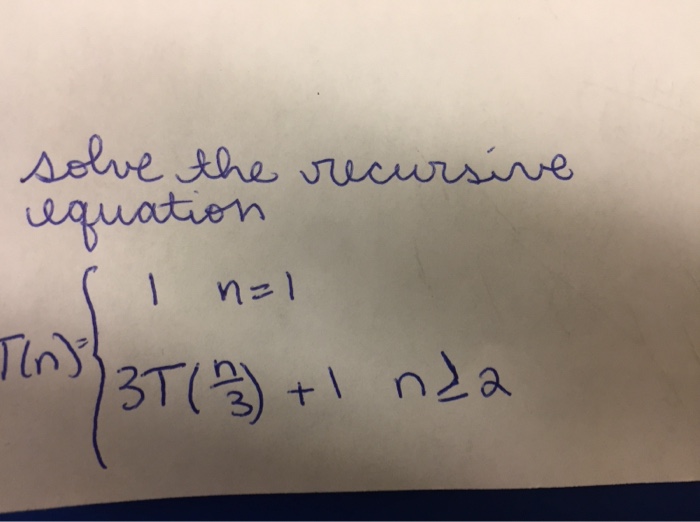 solve the recursive
equation
T(n)= { 1 n=1
3T(n/3) +1 n≥2